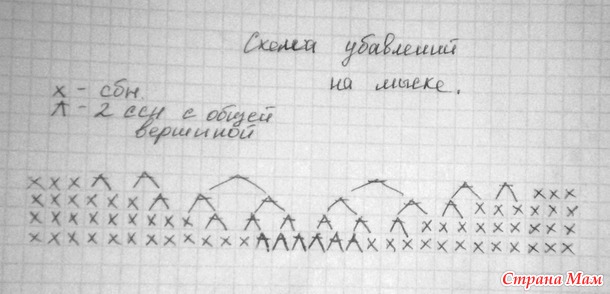 Схема убавлений
на мыске.
х - сбн.
- 2 ссн с общей
вершиной
Страна Мам